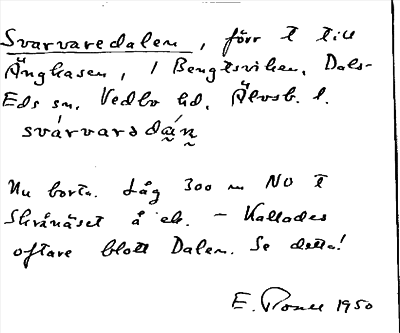 Svarvaredalen, förr t till
Änghasen, / Bengtsviken, Dals-
Eds sn, Vedbo hd, Älvsb. l.
svárvarədàn
Nu borta. Låg 300 m NO t
Skrånäset å ek. – Kallades
oftare blott Dalen. Se detta!
E. 1950